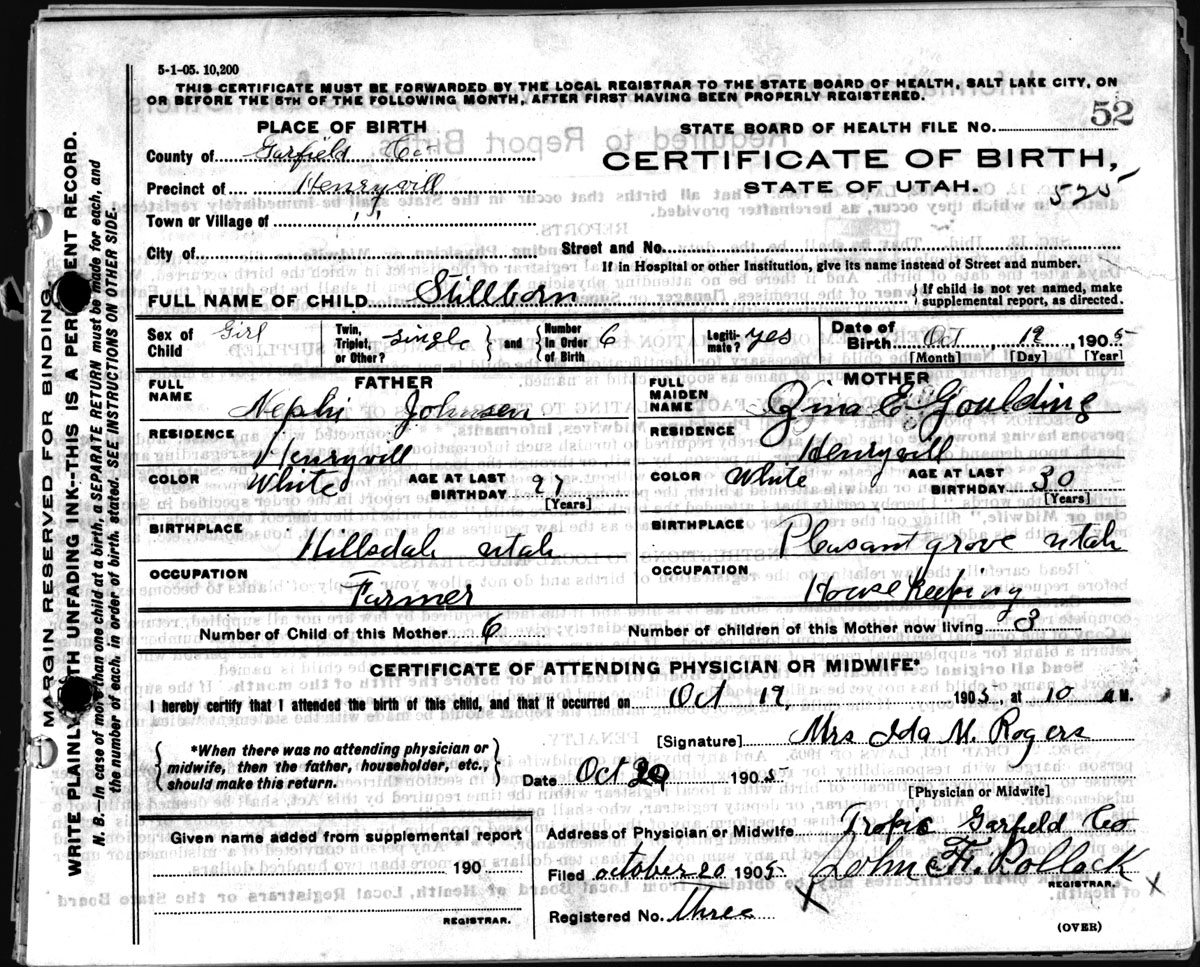 5-1-05. 10,200
THIS CERTIFICATE MUST BE FORWARDED BY THE LOCAL REGISTRAR TO THE STATE BOARD OF HEALTH, SALT LAKE CITY, ON
OR BEFORE THE 5TH OF THE FOLLOWING MONTH, AFTER FIRST HAVING BEEN PROPERLY REGISTERED.
PLACE OF BIRTH
STATE BOARD OF HEALTH FILE NO. 52
County of Garfield Co
CERTIFICATE OF BIRTH,
Precinct of Henryvill
STATE OF UTAH. 525
Town or Village of " "
City of Street and No.
If in Hospital or other Institution, give its name instead of Street and number.
FULL NAME OF CHILD Stillborn { If child is not yet named, make
supplemental report, as directed.
Sex of Child Girl Twin, Triplet, or Other? single } and { Number in Order of Birth 6 Legitimate? yes Date of Birth Oct, 19, 1905
[Month] [Day] [Year]
FATHER MOTHER
FULL NAME Nephi Johnsen FULL MAIDEN NAME Zina E. Goulding
RESIDENCE Henryvill RESIDENCE Henryvill
COLOR White AGE AT LAST BIRTHDAY 27 COLOR White AGE AT LAST BIRTHDAY 30
[Years] [Years]
BIRTHPLACE Hillsdale utah BIRTHPLACE Pleasant grove utah
OCCUPATION Farmer OCCUPATION House Keeping
Number of Child of this Mother 6 Number of children of this Mother now living 3
CERTIFICATE OF ATTENDING PHYSICIAN OR MIDWIFE*
I hereby certify that I attended the birth of this child, and that it occurred on Oct 19, 1905, at 10 A M.
{ *When there was no attending physician or
midwife, then the father, householder, etc.,
should make this return. }
[Signature] Mrs Ida M. Rogers
Date Oct 20 1905
[Physician or Midwife]
Given name added from supplemental report
190
REGISTRAR.
Address of Physician or Midwife Tropic Garfield Co
Filed october 20 1905 John F. Pollock
REGISTRAR.
X X
Registered No. three
(OVER)
MARGIN RESERVED FOR BINDING.
WRITE PLAINLY WITH UNFADING INK--THIS IS A PERMANENT RECORD.
N. B.--In case of more than one child at a birth, a SEPARATE RETURN must be made for each, and
the number of each, in order of birth, stated. SEE INSTRUCTIONS ON OTHER SIDE.